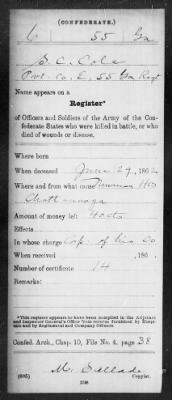 (CONFEDERATE.)
C 55 Ga
S. C. Cole
Pvt. Co. E, 55 Ga Regt
Name appears on a
Register*
of Officers and Soldiers of the Army of the Confederate
federate States who were killed in battle, or who
died of wounds or disease.
Where born
When deceased June 29, 1862
Where and from what cause Newman Hos
Chattanooga
Amount of money left
Effects
In whose charge Cap. of his Co
When received , 186 .
Number of certificate 14
Remarks:
*This register appears to have been compiled in the Adjutant
and Inspector General's Office from returns furnished by Surgeons
and by Regimental and Company Officers.
Confed. Arch., Chap. 10, File No. 4, page 38
M. Sellade
(635) Copyist.